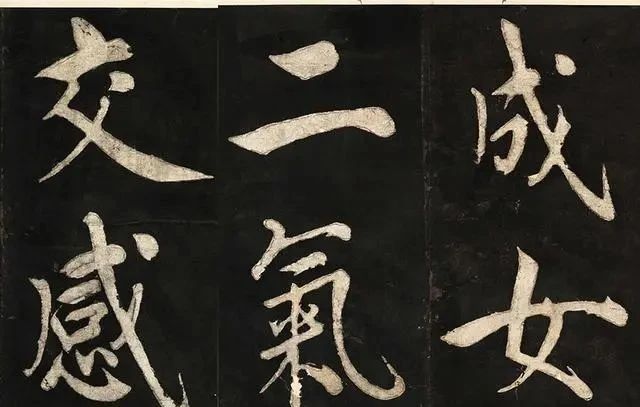 成女
二氣
交感